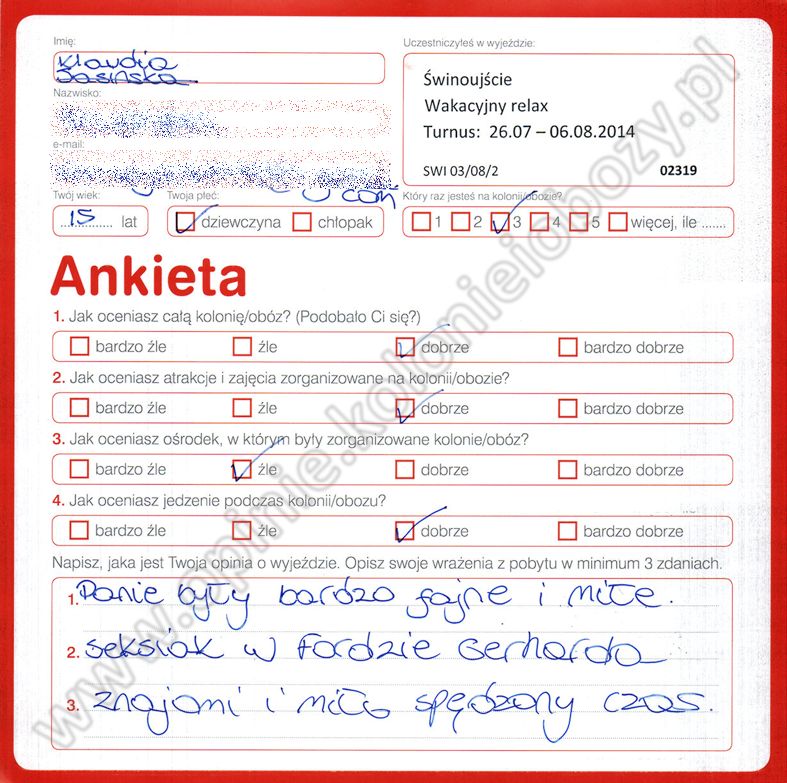 Imię:
Klaudia
Jasińska
Uczestniczyłeś w wyjeździe:
Świnoujście
Wakacyjny relax
Turnus: 26.07 – 06.08.2014
SWI 03/08/2 02319
Nazwisko:
e-mail:
Twój wiek: Twoja płeć: Który raz jesteś na kolonii/obozie?
15 lat dziewczyna chłopak 1 2 3 4 5 więcej, ile .......
Ankieta
1. Jak oceniasz całą kolonię/obóz? (Podobało Ci się?)
bardzo źle źle dobrze bardzo dobrze
2. Jak oceniasz atrakcje i zajęcia zorganizowane na kolonii/obozie?
bardzo źle źle dobrze bardzo dobrze
3. Jak oceniasz ośrodek, w którym były zorganizowane kolonie/obóz?
bardzo źle źle dobrze bardzo dobrze
4. Jak oceniasz jedzenie podczas kolonii/obozu?
bardzo źle źle dobrze bardzo dobrze
Napisz, jaka jest Twoja opinia o wyjeździe. Opisz swoje wrażenia z pobytu w minimum 3 zdaniach.
1. Panie były bardzo fajne i miłe.
2. seksiak w Fordzie Gerharda
3. znajomi i miło spędzony czas.
www.opinie.kolonieiobozy.pl